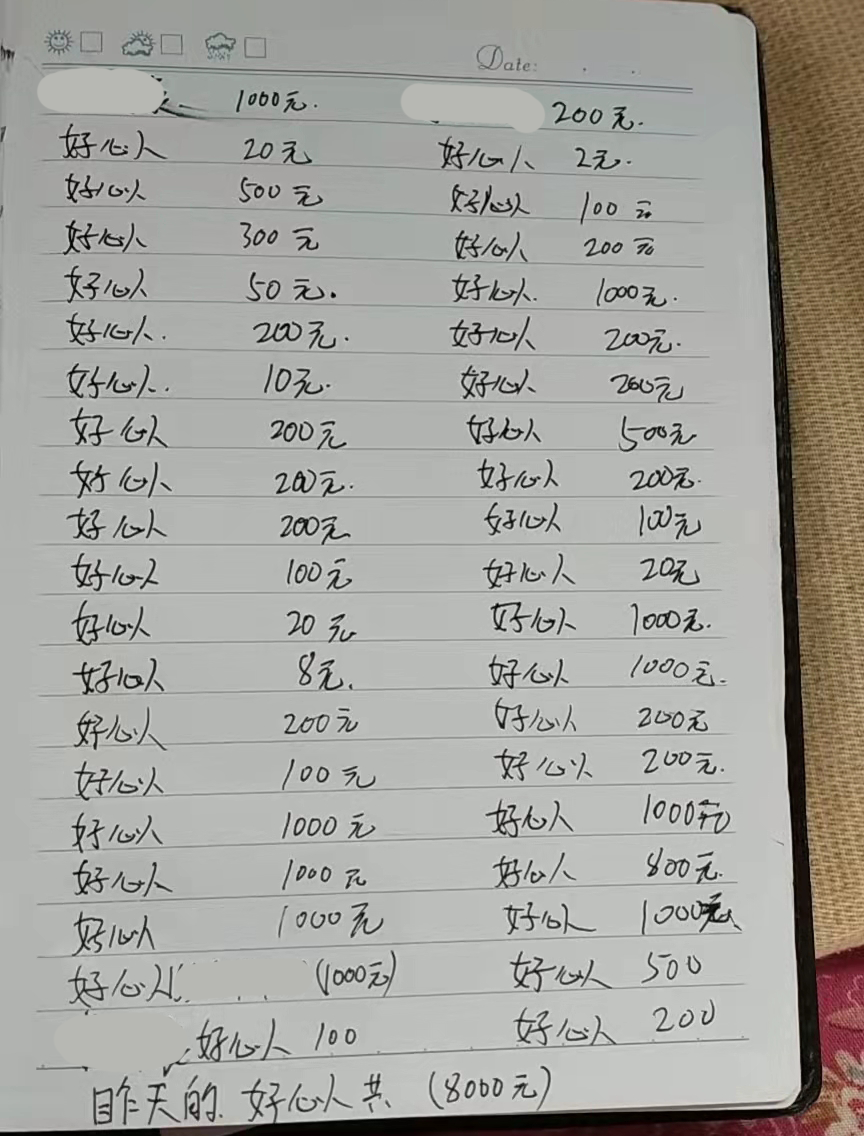 Date:
1000元. 200元.
好心人 20元 好心人 2元.
好心人 500元 好心人 100元
好心人 300元 好心人 200元
好心人 50元. 好心人. 1000元.
好心人. 200元. 好心人 200元.
好心人. 10元. 好心人 200元
好心人 200元 好心人 500元
好心人 200元. 好心人 200元.
好心人 200元 好心人 100元
好心人 100元 好心人 20元
好心人 20元 好心人 1000元.
好心人 8元. 好心人 1000元.
好心人 200元 好心人 200元
好心人 100元 好心人 200元.
好心人 1000元 好心人 1000元
好心人 1000元 好心人 800元.
好心人 1000元 好心人 1000元
好心人 (1000元) 好心人 500
好心人 100 好心人 200
昨天的 好心人共 (8000元)